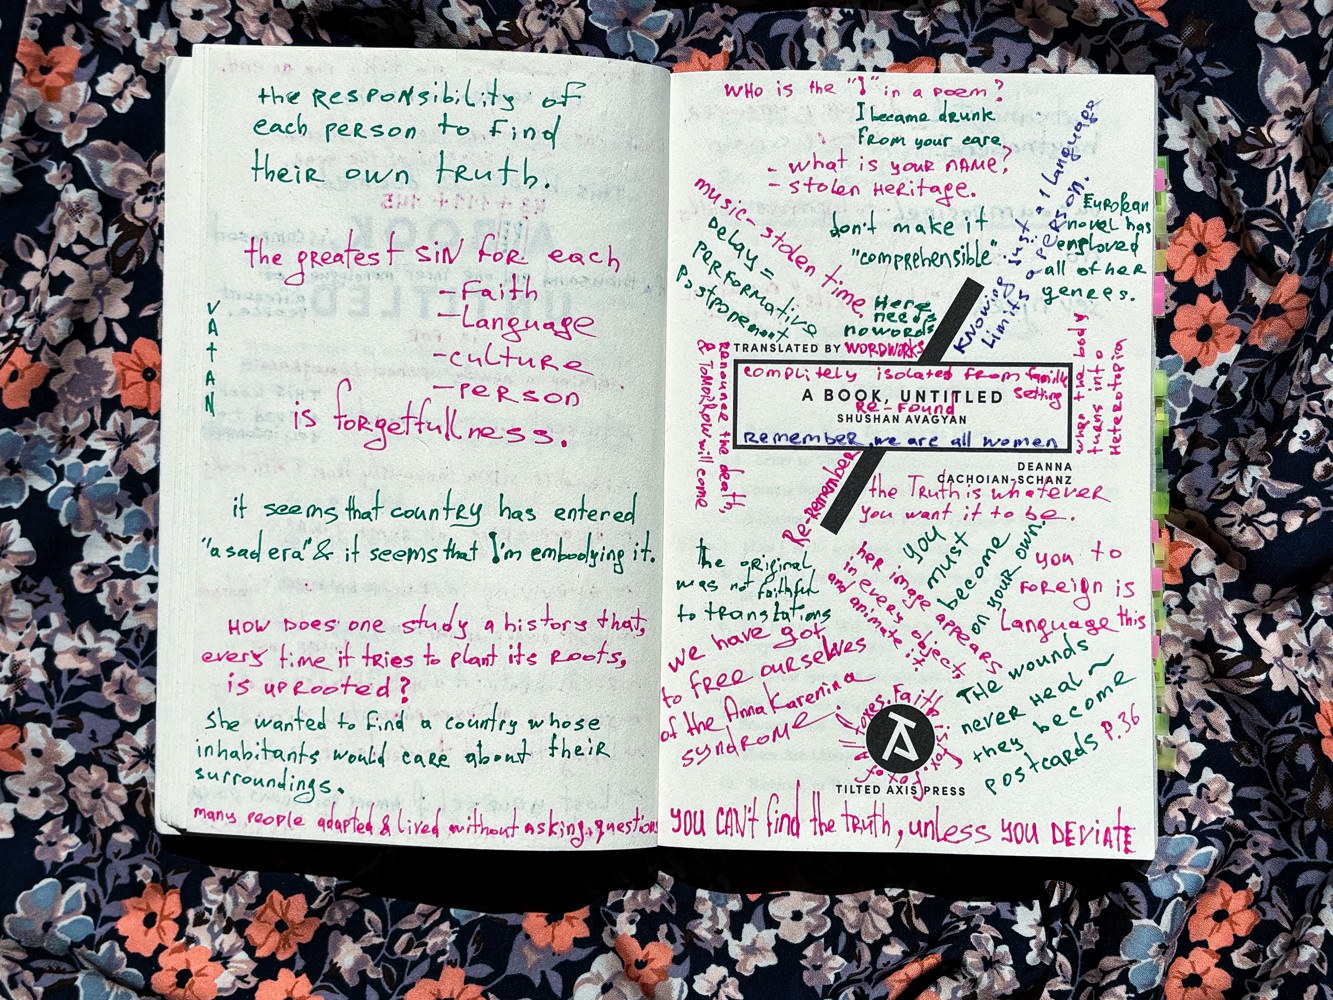 the RESPONSIBILITY of
each person to find
their own truth.
the greatest sin for each
- Faith
- Language
- culture
- person
is forgetfullness.
VATAN
it seems that country has entered
"a sad era" & it seems that I'm embodying it.
HOW DOES one study a history that,
every time it tries to plant its ROOTS,
is uprooted?
She wanted to find a country whose
inhabitants would care about their
surroundings.
many people adapted & lived without asking questions
WHO is the "I" in a poem?
I became drunk
from your care.
- what is your NAME?
- stolen HERITAGE.
music - stolen time
Delay =
performative
postponement
don't make it
"comprehensible"
Knowing just a 1 language
limits a person.
European
novel has
employed
all other
genres.
Here
needs
no words
TRANSLATED BY WORDWORKS
complitely isolated from family
setting
A BOOK, UNTITLED
RE-FOUND
SHUSHAN AVAGYAN
Remember, we are all women
DEANNA
CACHOIAN-SCHANZ
Renounce the death,
& TOMORROW will come
when the body
turns into
Heterotopia
Re-Remember
the Truth is whatever
you want it to be.
the original
was not faithful
to translations
her image appears
in every object
and animate it.
you
must
become
on your own.
you to
foreign is
Language this
we have got
to free ourselves
of the Anna Karenina
syndrome.
THE wounds
never Heal ~
they become
postcards P.36
TILTED AXIS PRESS
YOU CAN'T find the truth, unless YOU DEVIATE